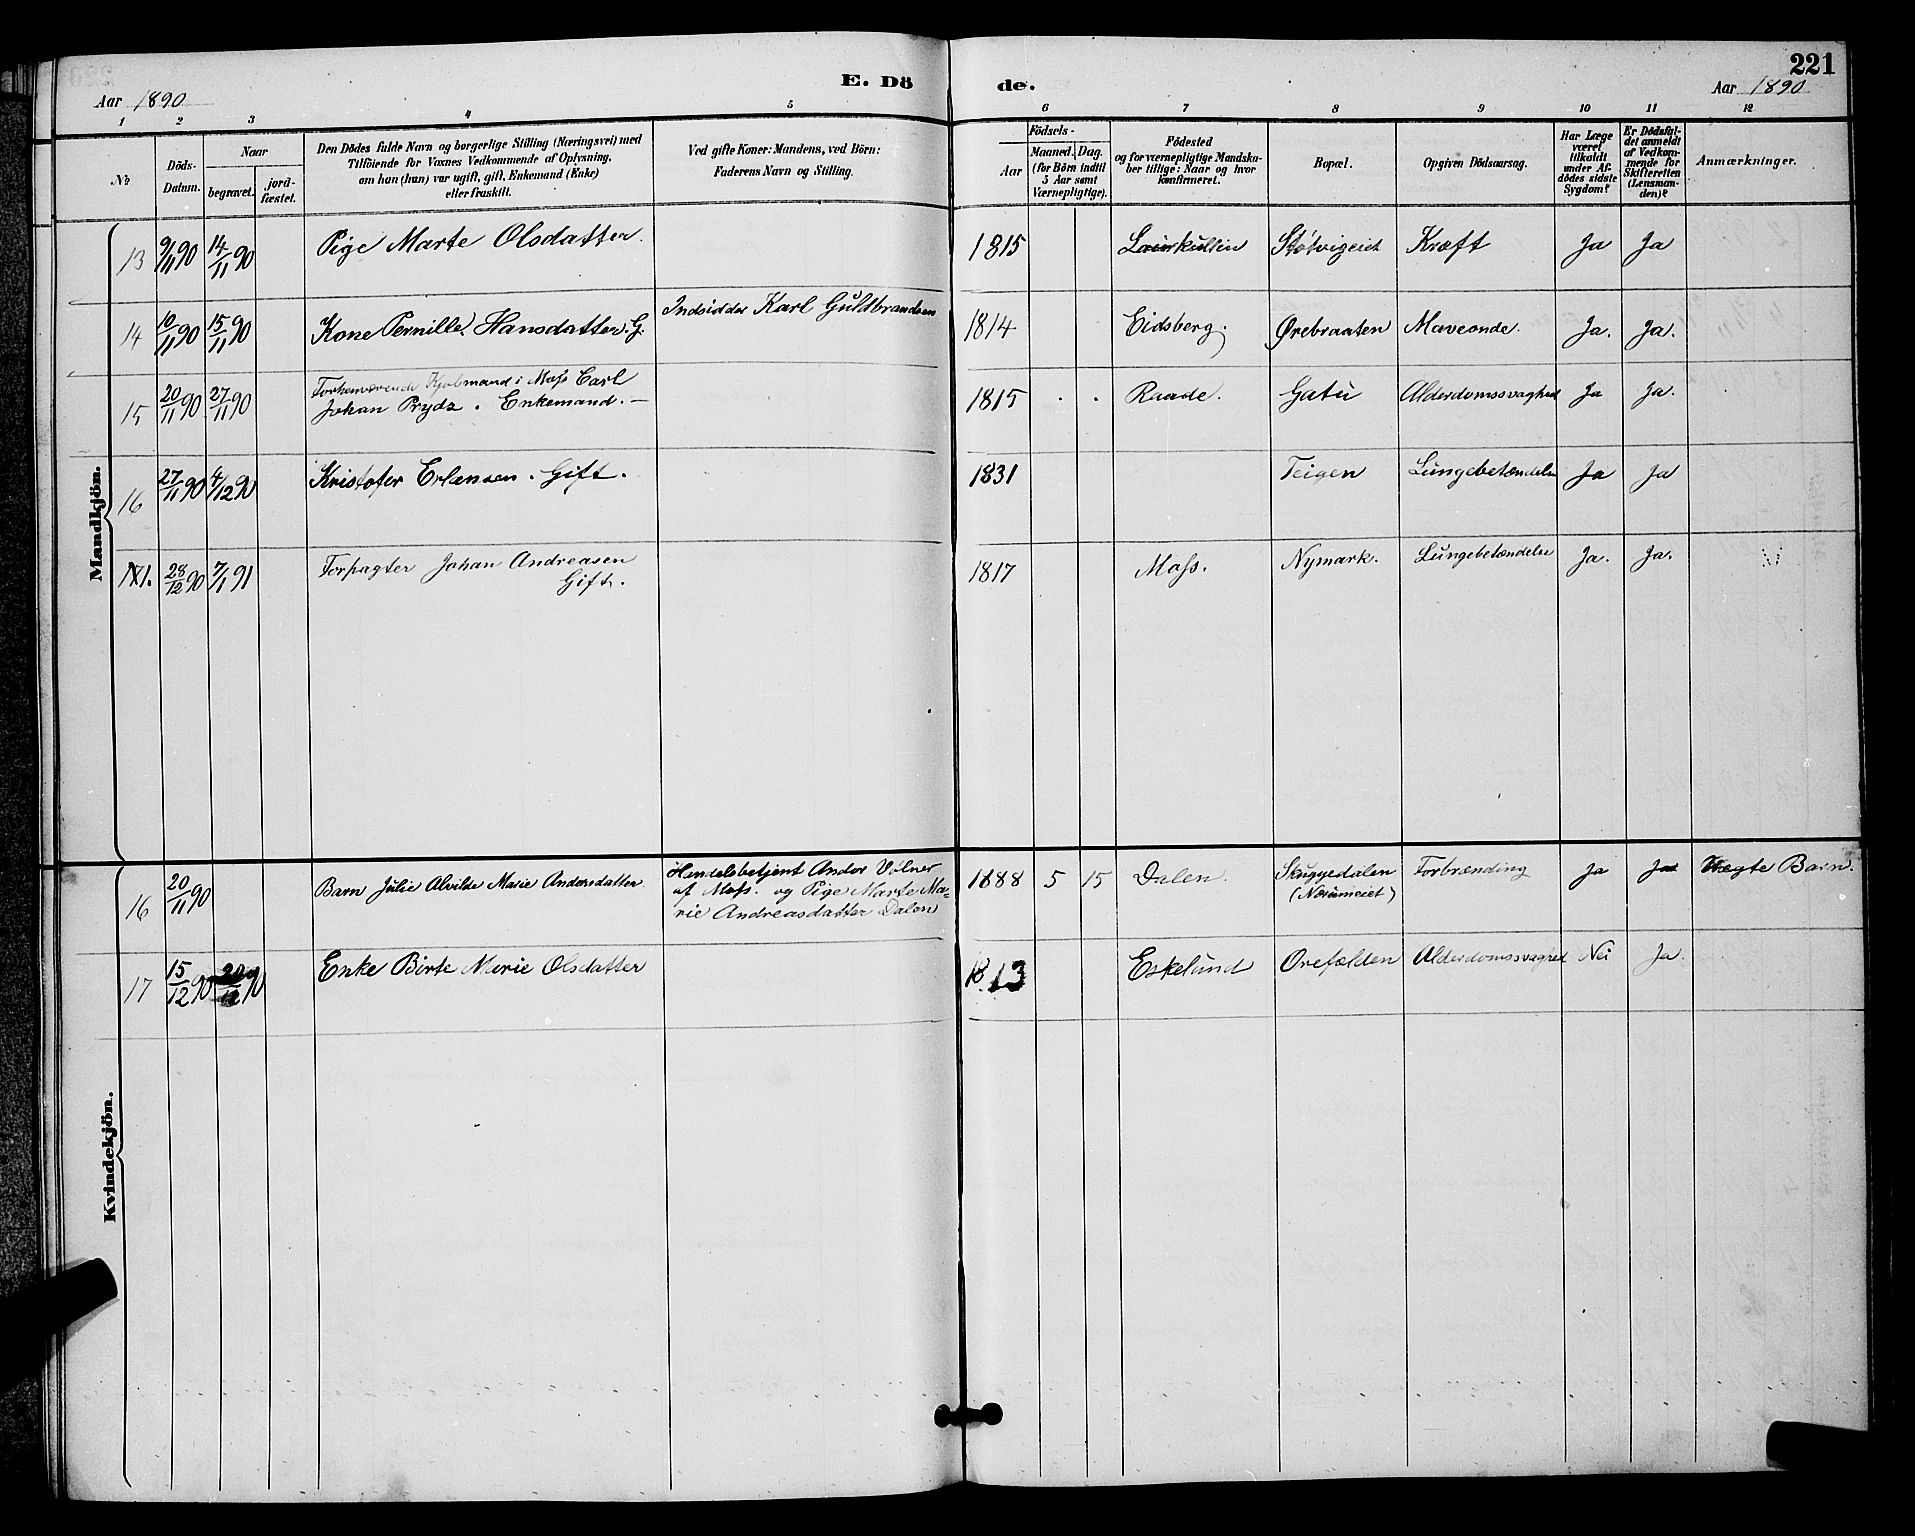 221
E. Dö de.
Aar 1890
Aar 1890
1 2 3 4 5 6 7 8 9 10 11 12
№
Döds-
Datum.
Naar
begravet.
jord-
fæstet.
Den Dödes fulde Navn og borgerlige Stilling (Næringsvei) med
Tilföiende for Voxnes Vedkommende af Oplysning,
om han (hun) var ugift, gift, Enkemand (Enke)
eller fraskilt.
Ved gifte Koner: Mandens, ved Börn:
Faderens Navn og Stilling.
Födsels-
Aar
Maaned. Dag.
(for Börn indtil
5 Aar samt
Værnepligtige).
Födested
og for værnepligtige Mandska-
ber tillige: Naar og hvor
konfirmeret.
Bopæl.
Opgiven Dödsaarsag.
Har Læge
været
tilkaldt
under Af-
dödes sidste
Sygdom?
Er Dödsfal-
det anmeldt
af Vedkom-
mende for
Skifteretten
(Lensman-
den)?
Anmærkninger.
Mandkjön.
13 9/11 90 14/11 90 Pige Marte Olsdatter. 1815 Støtvigeiet Kræft Ja Ja
14 10/11 90 15/11 90 Kone Pernille Hansdatter. G. Indsidder Karl Guldbrandsen 1814 Eidsberg. Ørebraaten Maveonde. Ja. Ja.
15 20/11 90 27/11 90 Forhenværende Kjøbmand i Moss Carl
Johan Prydz. Enkemand. — 1815 . . Raade. Gatu Alderdomssvaghed Ja Ja.
16 27/11 90 4/12 90 Kristofer Erlensen. Gift. 1831 Teigen Lungebetændelse Ja Ja
28/12 90 7/1 91 Forpagter Johan Andreasen
Gift. 1817 Moss. Nymark. Lungebetændelse Ja. Ja.
Kvindekjön.
16 20/11 90 Barn Julie Alvilde Marie Andersdatter. Handelsbetjent Andor Vølner
af Moss. og Pige Marte Ma-
rie Andreasdatter Dalen 1888 5 15 Dalen. Skuggedalen
(Nøsumeiet) Forbrænding Ja Ja Uægte Barn.
17 15/12 90 20/12 90 Enke Birte Marie Olsdatter 1813 Eskelund Orefælden Alderdomssvaghed Nei Ja.